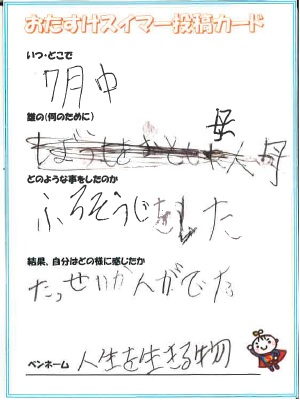 おたすけスイマー投稿カード
いつ・どこで
7月中
誰の(何のために)
母
母
どのような事をしたのか
ふろそうじをした
結果、自分はどの様に感じたか
たっせいかんがでた
ペンネーム 人生を生きる物